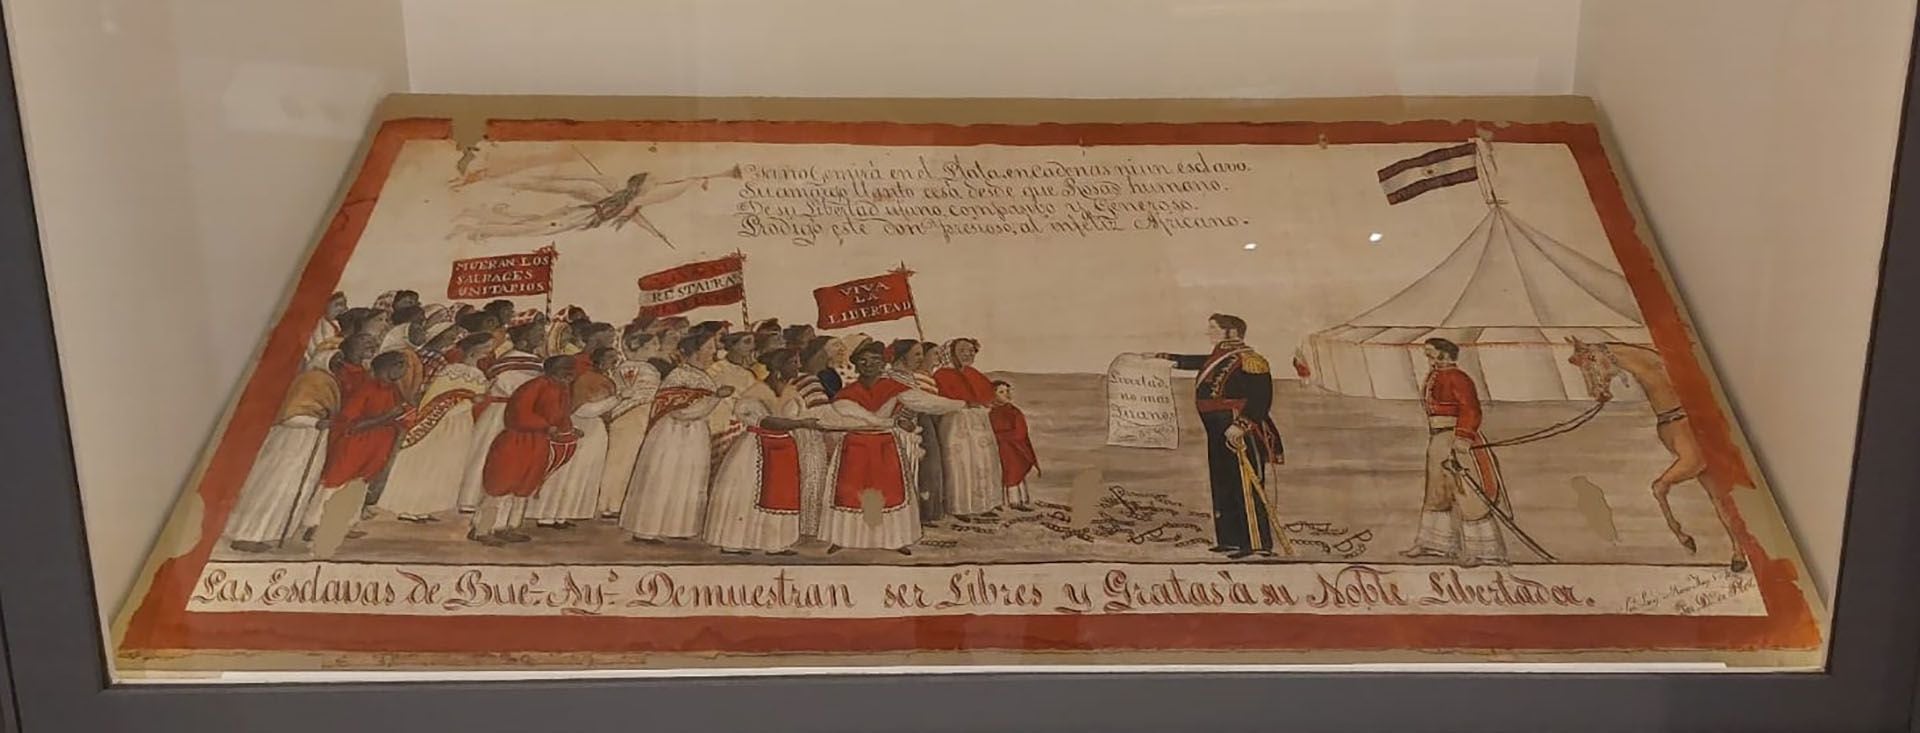 Ya no gemirá en el Plata en cadenas ni un esclavo.
Su amargo llanto cesó desde que Rosas humano.
De su Libertad ufano, compasibo y Generoso.
Prodigó este don presioso, al infeliz Africano.
MUERAN LOS
SALBAGES
UNITARIOS
RESTAURA
VIVA
LA
LIBERTAD
Libertad.
no mas
Tiranos
Las Esclavas de Bue.s Ay.s Demuestran ser Libres y Gratas á su Noble Libertador.